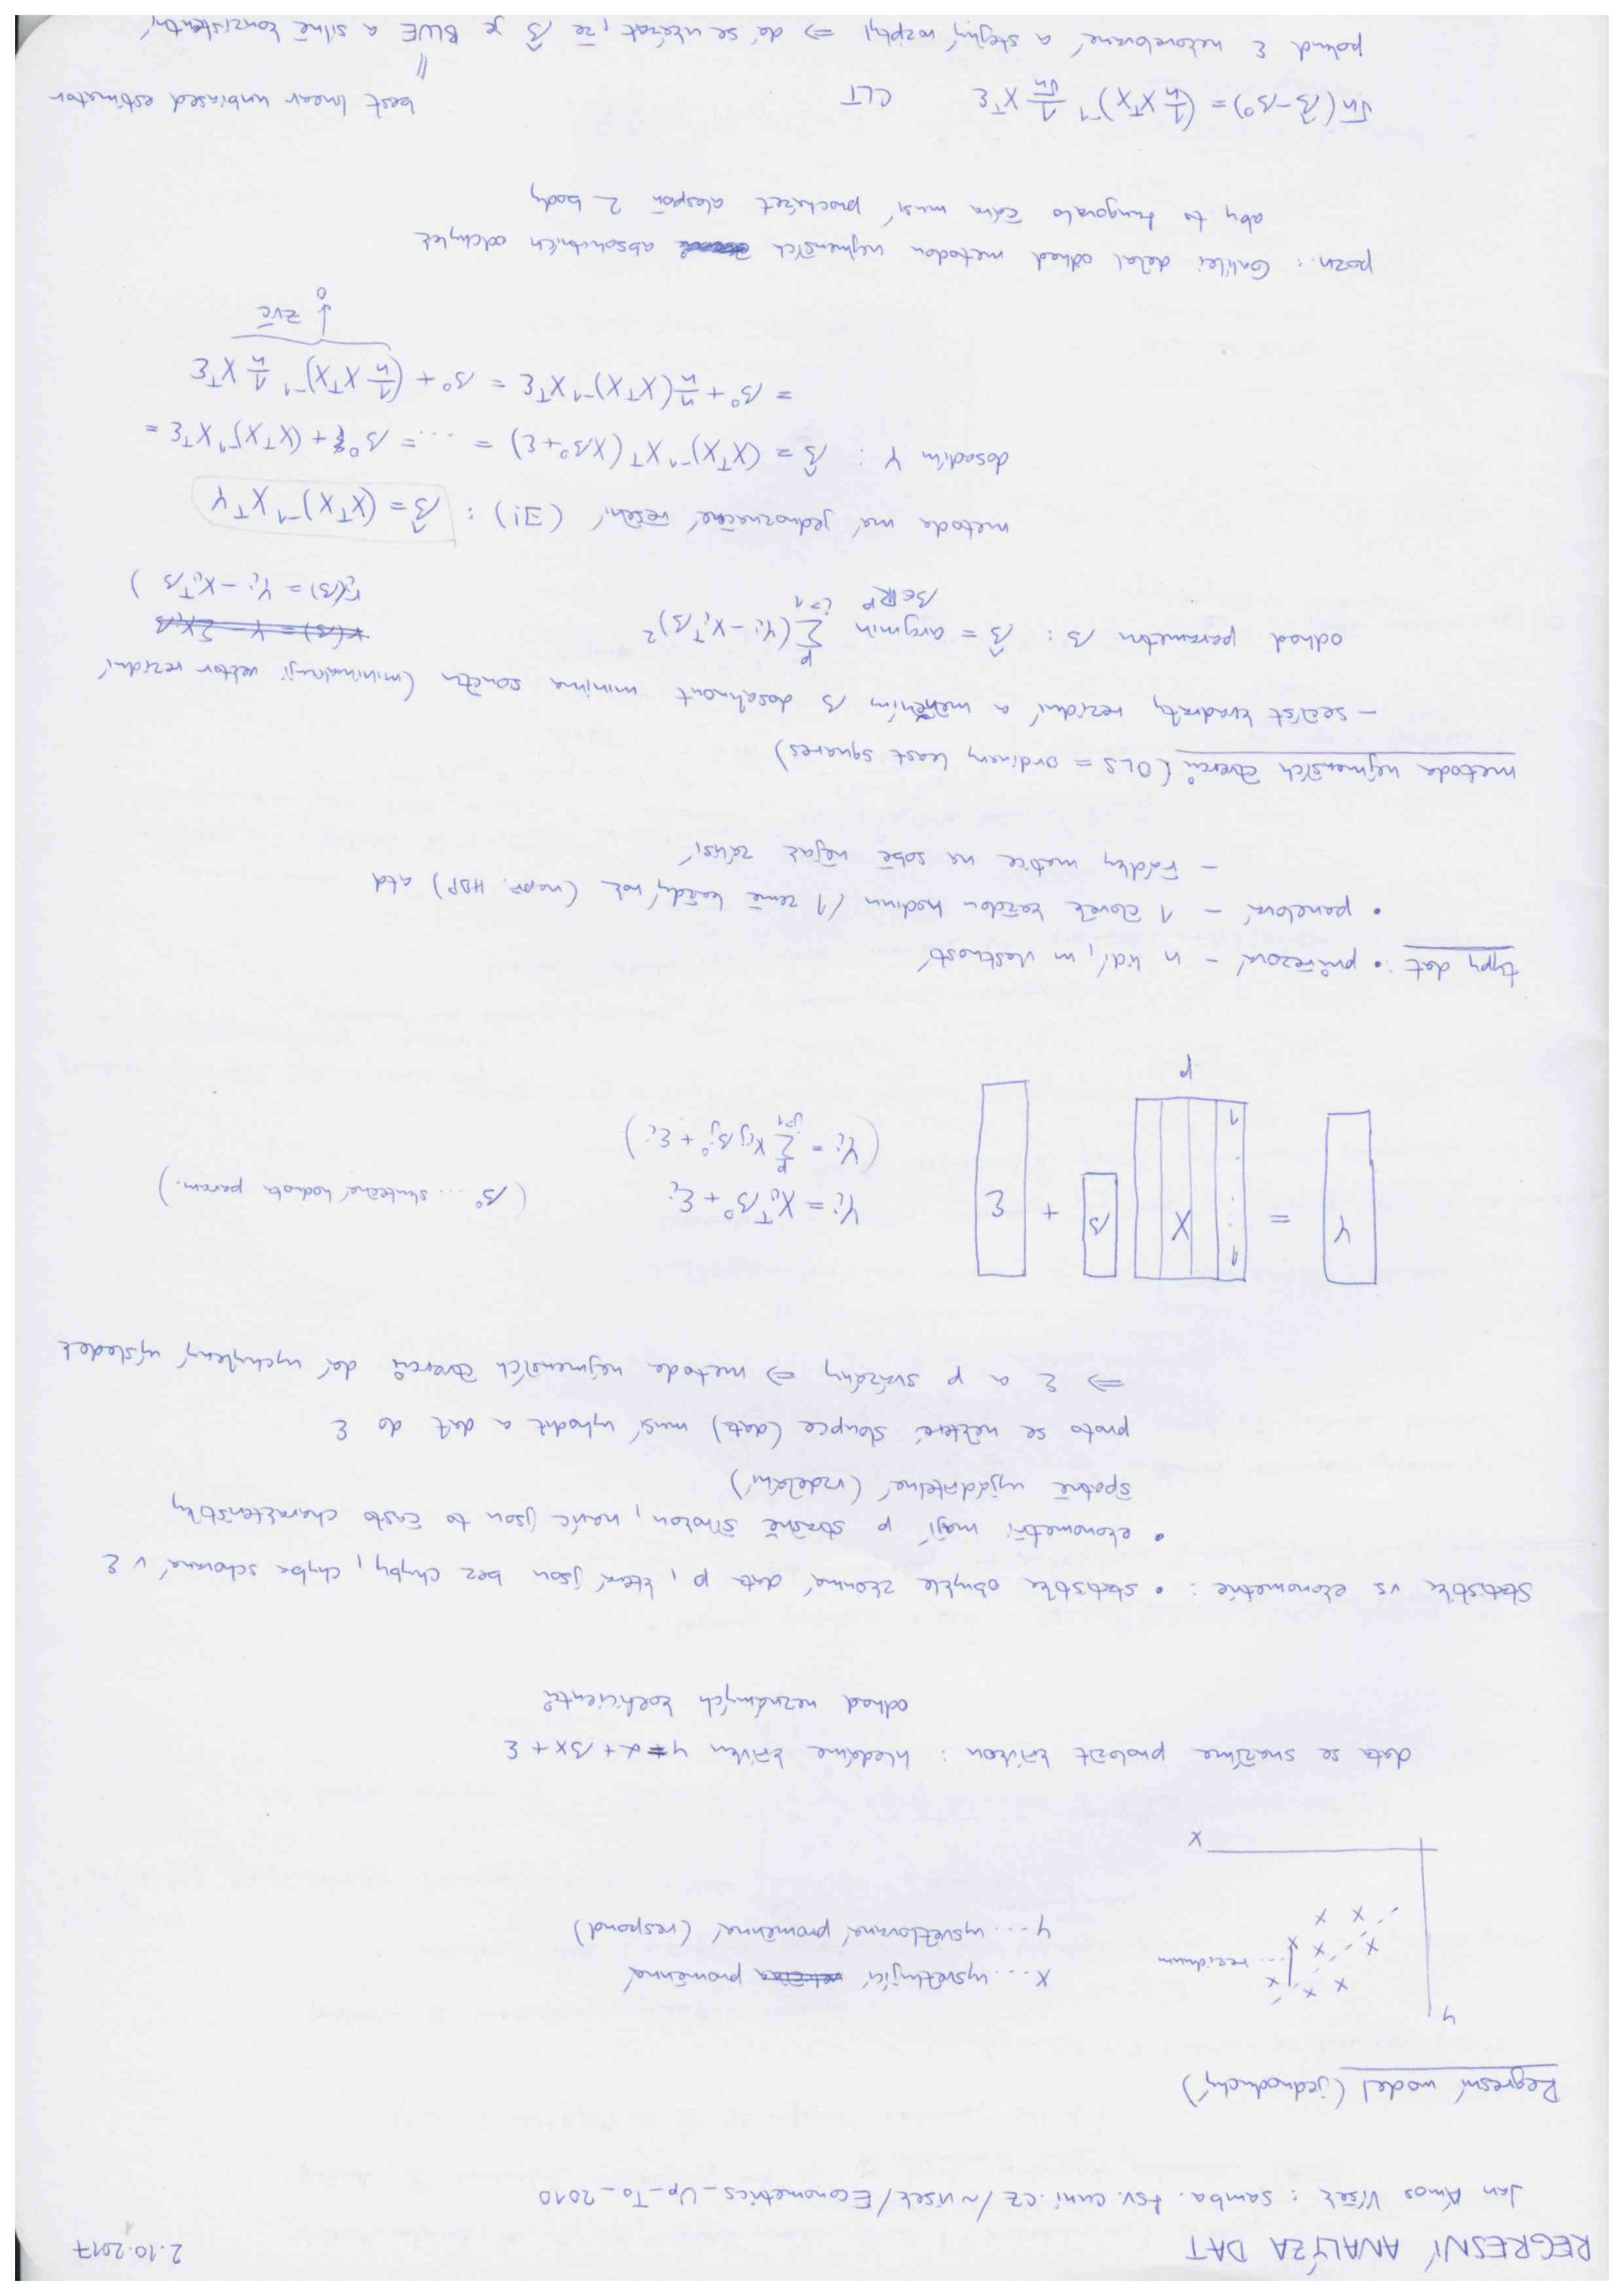 REGRESNÍ ANALÝZA DAT 2.10.2017
1
Jan Ámos Víšek : samba.fsv.cuni.cz/~visek/Econometrics_Up_To_2010
Regresní model (jednoduchý)
y
reziduum
x
x ... vysvětlující veličina proměnná
y ... vysvětlovaná proměnná (respond)
data se snažíme proložit křivkou : hledáme křivku y = α + βx + ε
odhad neznámých koeficientů
Statistika vs ekonometrie : • statistika obvykle zkoumá data p, která jsou bez chyby, chyba schovaná v ε
• ekonometři mají p strašně širokou, navíc jsou to často charakteristiky
špatně vyjádřitelné (vzdělání)
proto se některé sloupce (data) musí vyhodit a dát do ε
⇒ ε a p svázány ⇒ metoda nejmenších čtverců dá vychýlený výsledek
Y = 1 ⋮ 1 X β + ε
p
Yi = Xi^T β⁰ + εi (β⁰ ... skutečná hodnota param.)
(Yi = Σ_{j=1}^{p} xij βj⁰ + εi)
typy dat : • průřezová – n lidí, m vlastností
• panelová – 1 člověk každou hodinu / 1 země každý rok (např. HDP) atd
– řádky matice na sobě nějak závisí
metoda nejmenších čtverců (OLS = ordinary least squares)
– sečíst kvadráty reziduí a měněním β dosáhnout minima součtu (minimalizuji vektor reziduí
odhad parametru β : β̂ = argmin_{β∈ℝ^p} Σ_{i=1}^{p} (Yi – Xi^T β)²
r(β) = Y – ΣXiβ
ri(β) = Yi – Xi^T β )
metoda má jednoznačné řešení (∃!) : β̂ = (X^T X)^{-1} X^T Y
dosadím Y : β̂ = (X^T X)^{-1} X^T (Xβ⁰ + ε) = ... = β⁰ + (X^T X)^{-1} X^T ε =
= β⁰ + n/n (X^T X)^{-1} X^T ε = β⁰ + (1/n X^T X)^{-1} 1/n X^T ε
↓ ZVČ
0
pozn.: Galilei dělal odhad metodou nejmenších absolutních odchylek
aby to fungovalo čára musí procházet alespoň 2 body
√n (β̂ – β⁰) = (1/n X^T X)^{-1} 1/√n X^T ε CLT
best linear unbiased estimator
||
pokud ε nekorelované a stejný rozptyl ⇒ dá se ukázat, že β̂ je BLUE a silně konzistentní